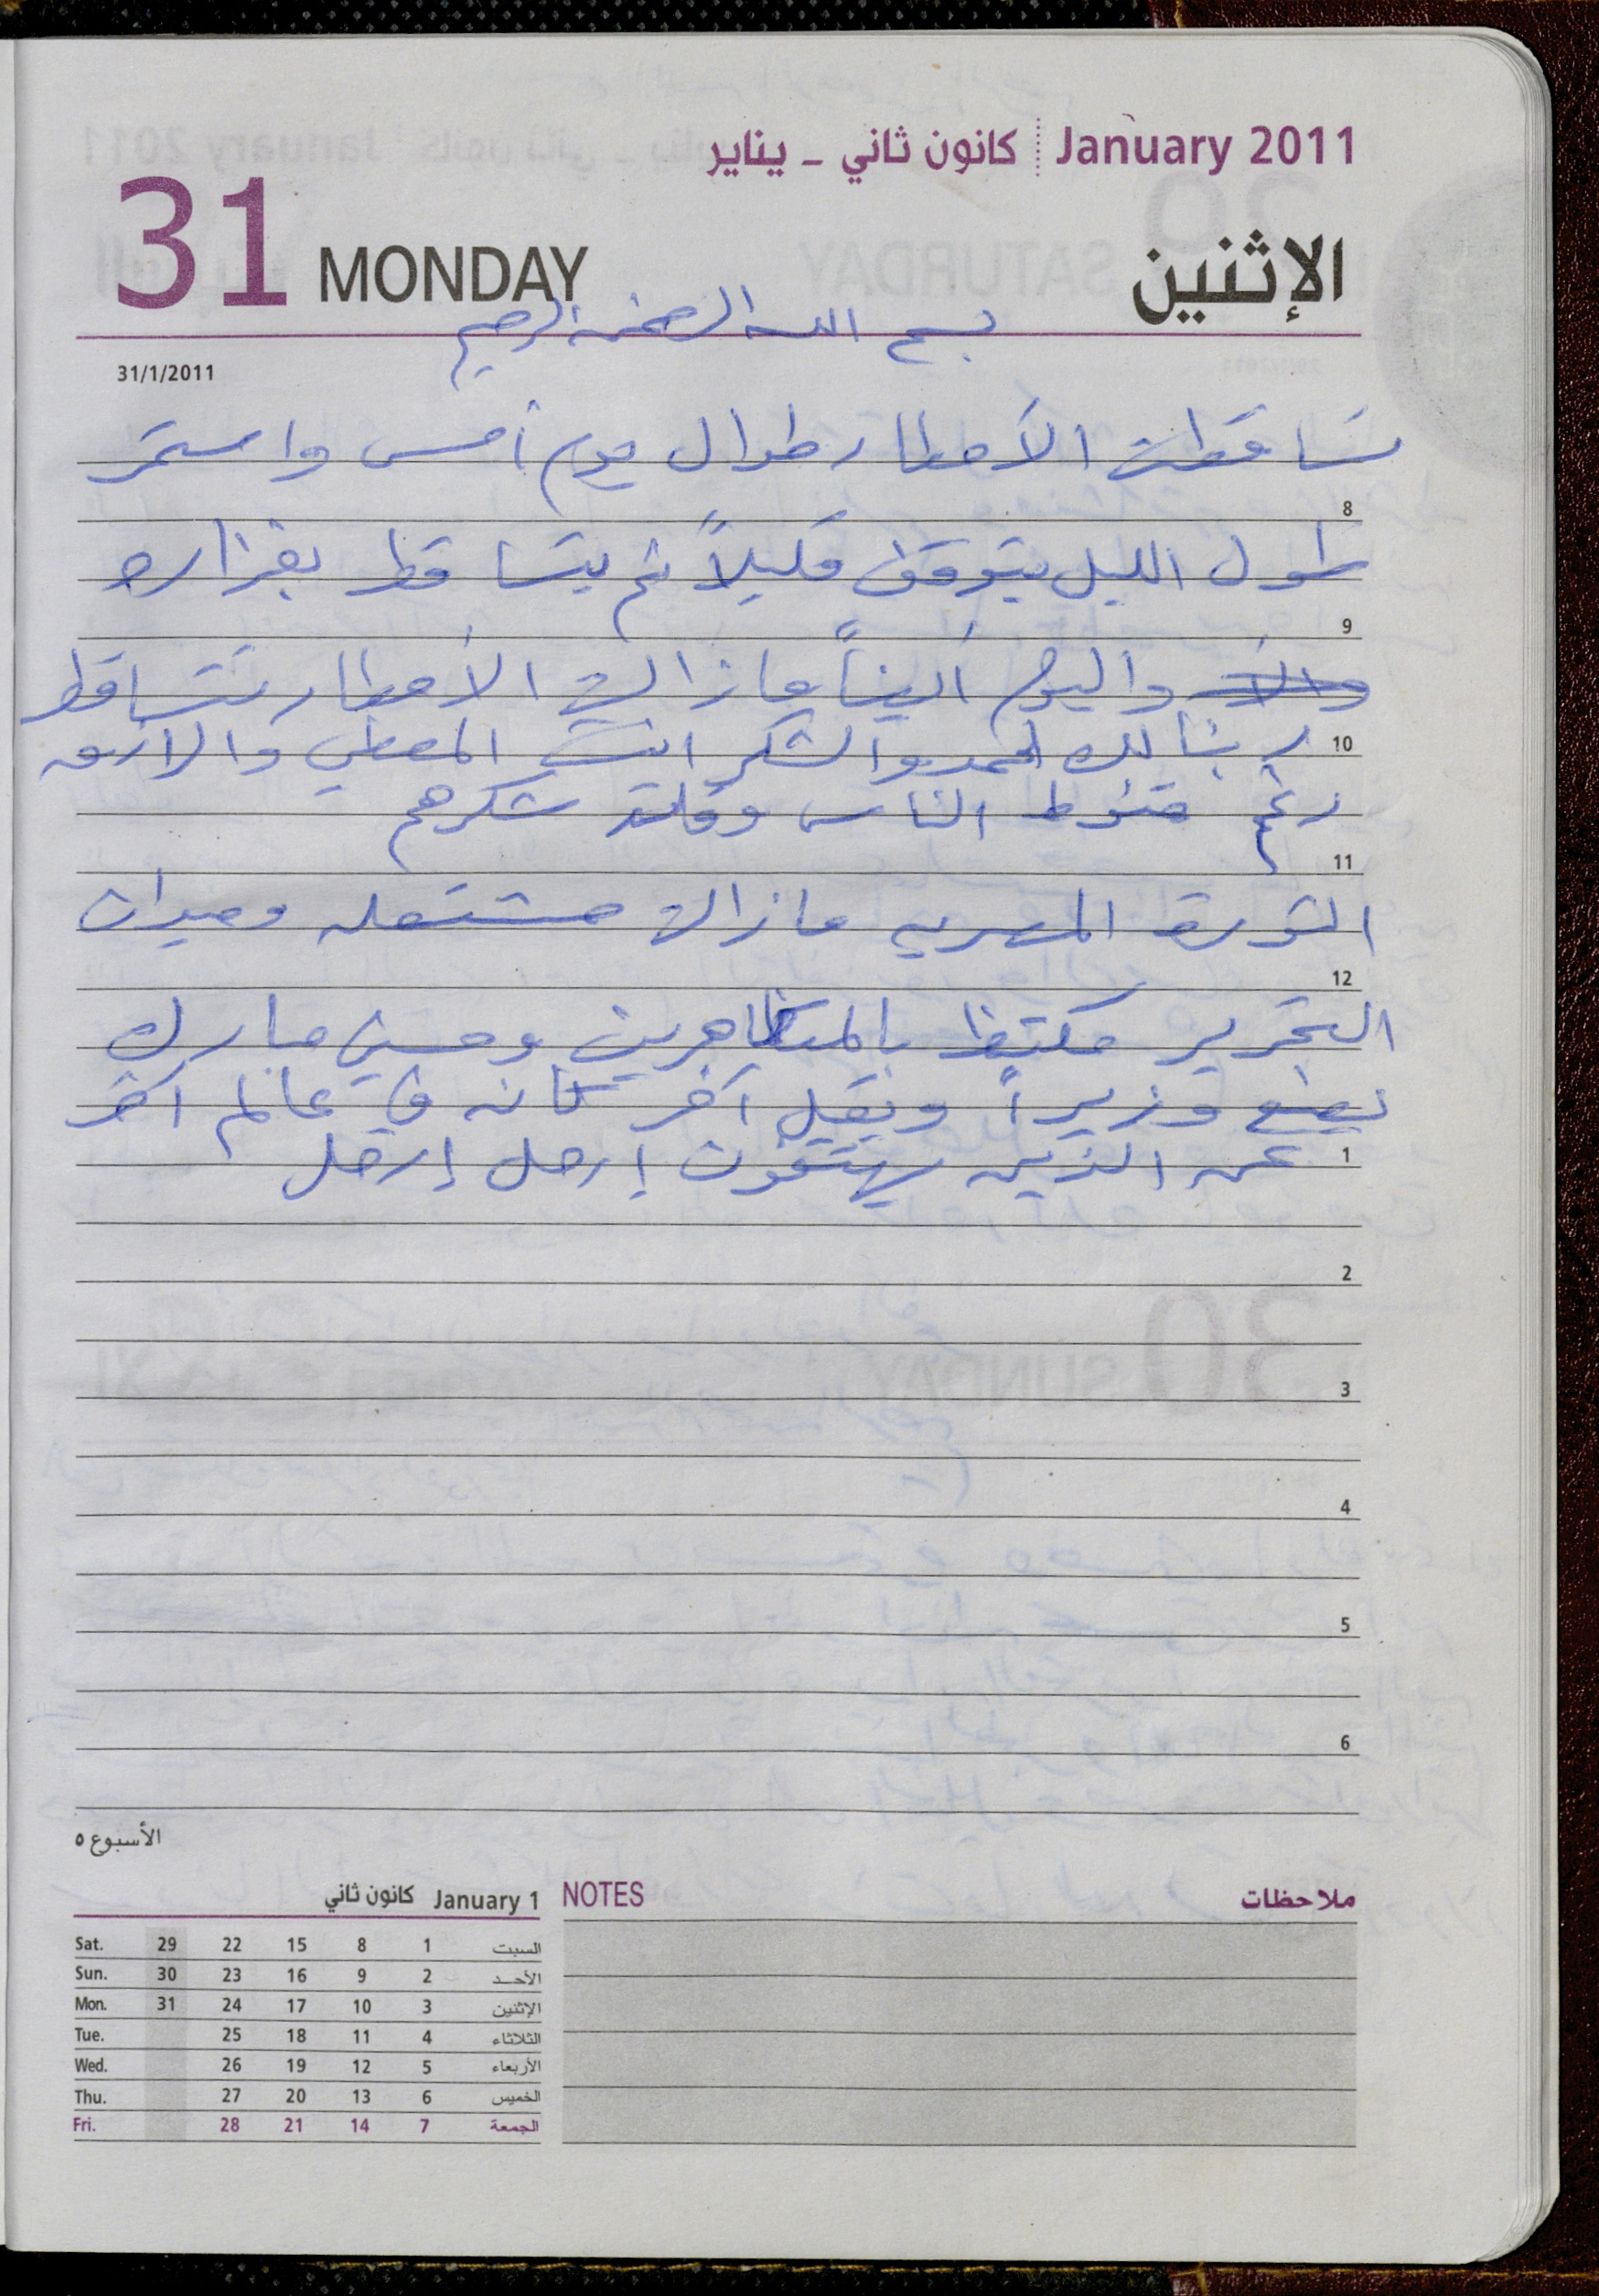 January 2011 كانون ثاني - يناير
31 MONDAY الإثنين
بسم الله الرحمن الرحيم
31/1/2011
تساقطت الأمطار طوال يوم أمس واستمر
8
طول الليل يتوقف قليلاً ثم يتساقط بغزاره
9
واليوم أيضاً مازالت الأمطار تتساقط
10 ربنا لك الحمد والشكر انت المعطي والرازق
رغم قنوط الناس وقلة شكرهم
11
الثورة المصريه مازالت مشتعله وميدان
12
التحرير مكتظ بالمتظاهرين وحسني مبارك
يضع وزيراً ويقيل آخر كانه في عالم آخر
1 عن الذين يهتفون إرحل إرحل
2
3
4
5
6
الأسبوع ٥
January 1 كانون ثاني
Sat. 29 22 15 8 1 السبت
Sun. 30 23 16 9 2 الأحد
Mon. 31 24 17 10 3 الإثنين
Tue. 25 18 11 4 الثلاثاء
Wed. 26 19 12 5 الأربعاء
Thu. 27 20 13 6 الخميس
Fri. 28 21 14 7 الجمعة
NOTES ملاحظات